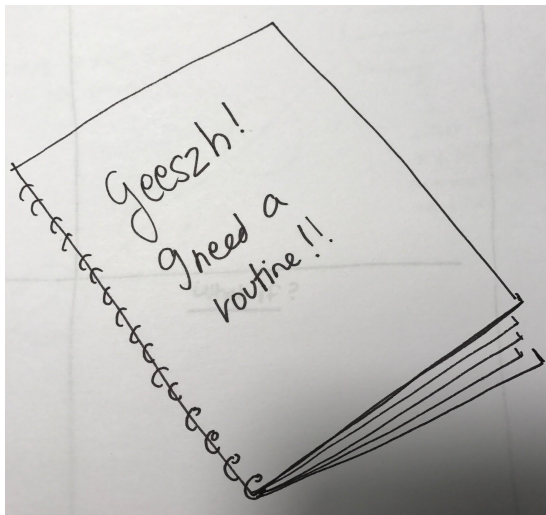 Geeszh!
I need a
routine!!
?